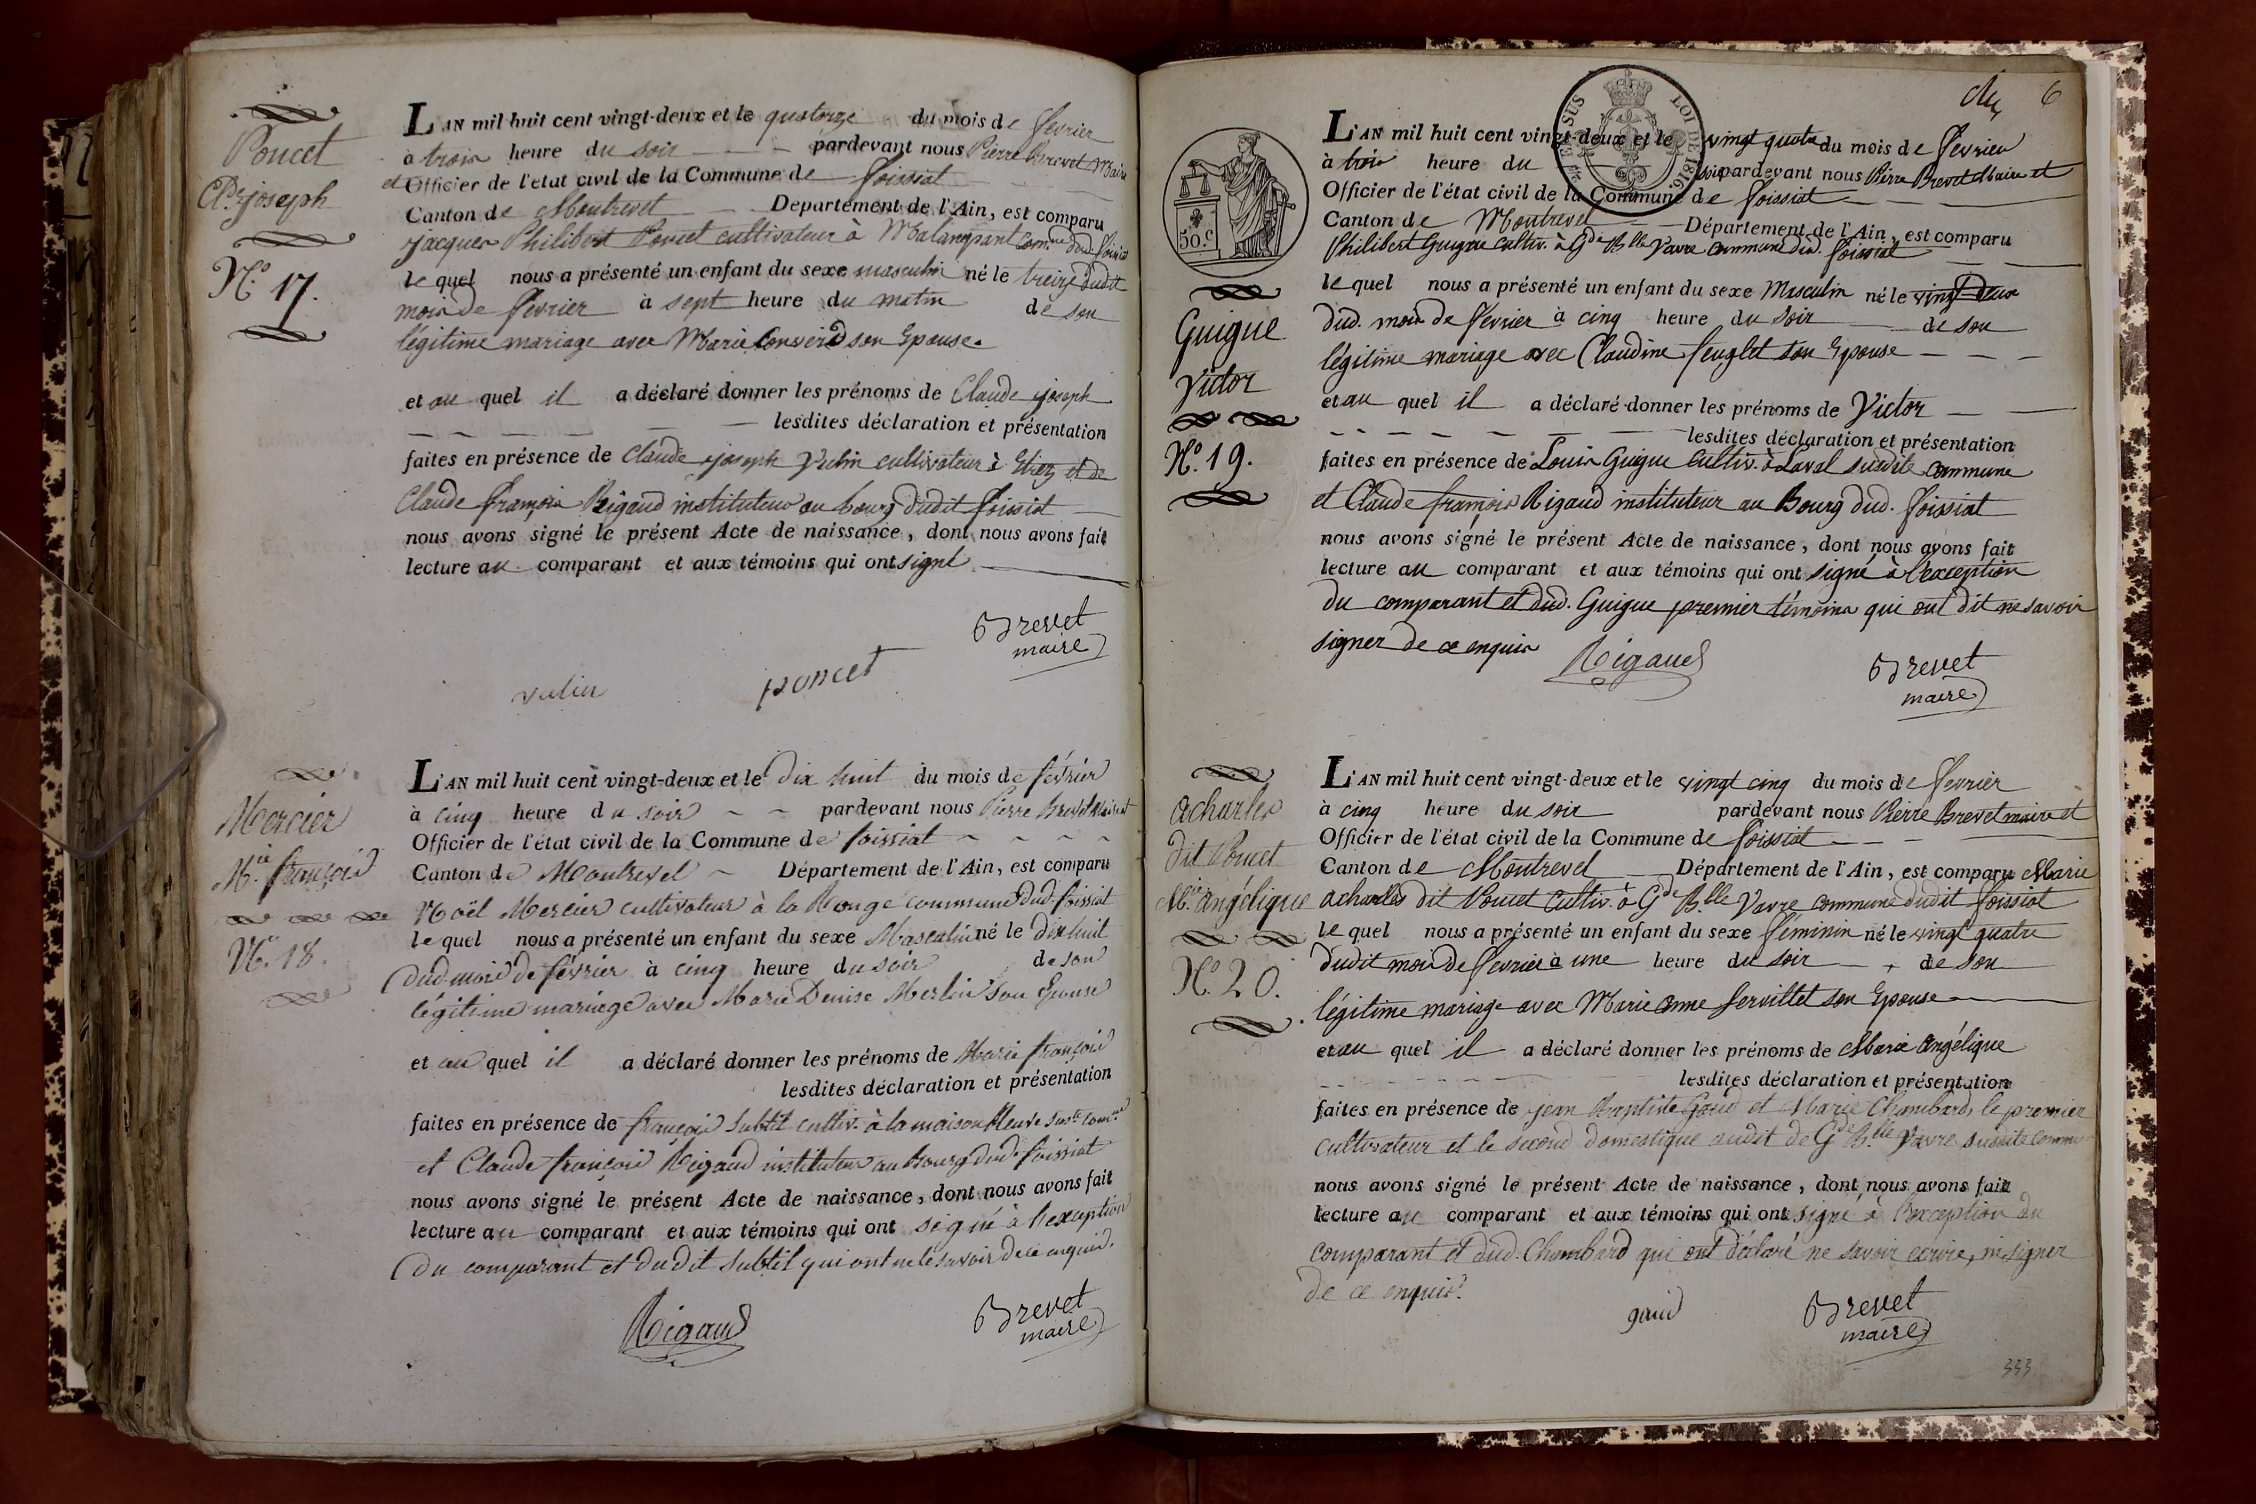 Poucet
Cde joseph
N.° 17.
L'AN mil huit cent vingt-deux et le quatorze du mois de fevrier
à trois heure du soir pardevant nous Pierre Brevet Maire
et Officier de l'etat civil de la Commune de foissiat
Canton de Montrevel Departement de l'Ain, est comparu
jacques Philibert Poncet cultivateur à Malampant Com.ne dud. foissiat
le quel nous a présenté un enfant du sexe masculin né le treize dudit
mois de fevrier à sept heure du matin de son
légitime mariage avec Marie Convert son Epouse.
et au quel il a déclaré donner les prénoms de Claude joseph
lesdites déclaration et présentation
faites en présence de Claude joseph Vulin cultivateur à Etrez et de
Claude françois Rigaud instituteur au bourg dudit foissiat
nous avons signé le présent Acte de naissance, dont nous avons fait
lecture au comparant et aux témoins qui ont signé
Brevet
maire
vulin
poncet
Mercier
M.ie françois
N.° 18.
L'AN mil huit cent vingt-deux et le dix huit du mois de février
à cinq heure du soir pardevant nous Pierre Brevet Maire et
Officier de l'état civil de la Commune de foissiat
Canton de Montrevel Département de l'Ain, est comparu
Noël Mercier cultivateur à la Rouge commune dud. foissiat
le quel nous a présenté un enfant du sexe Masculin né le dix huit
dud. mois de février à cinq heure du soir de son
légitime mariage avec Marie Denise Merlin son Epouse
et au quel il a déclaré donner les prénoms de Marie françois
lesdites déclaration et présentation
faites en présence de françois Subtil cultiv. à la maison Neuve susd.e Com.ne
et Claude françois Rigaud instituteur au bourg dud. foissiat
nous avons signé le présent Acte de naissance, dont nous avons fait
lecture au comparant et aux témoins qui ont signé à l'exception
du comparant et dudit Subtil qui ont ne le savoir de ce enquis.
Rigaud
Brevet
maire
6
EN SUS
LOI DE 1816.
50.c
Guigue
Victor
N.° 19.
L'AN mil huit cent vingt-deux et le vingt quatre du mois de fevrier
à trois heure du soir pardevant nous Pierre Brevet Maire et
Officier de l'état civil de la Commune de foissiat
Canton de Montrevel Département de l'Ain, est comparu
Philibert Guigue cultiv. à G.de B.lle Vavre commune dud. foissiat
le quel nous a présenté un enfant du sexe Masculin né le vingt deux
dud. mois de fevrier à cinq heure du soir de son
légitime mariage avec Claudine feuglet son Epouse
et au quel il a déclaré donner les prénoms de Victor
lesdites déclaration et présentation
faites en présence de Louis Guigue Cultiv. à Laval susdite commune
et Claude françois Rigaud instituteur au Bourg dud. foissiat
nous avons signé le présent Acte de naissance, dont nous avons fait
lecture au comparant et aux témoins qui ont signé à l'exception
du comparant et dud. Guigue premier témoins qui ont dit ne savoir
signer de ce enquis
Rigaud
Brevet
maire
acharles
dit Poucet
M.ie angélique
N.° 20.
L'AN mil huit cent vingt-deux et le vingt cinq du mois de fevrier
à cinq heure du soir pardevant nous Pierre Brevet maire et
Officier de l'état civil de la Commune de foissiat
Canton de Montrevel Département de l'Ain, est comparu Marie
acharles dit Poucet Cultiv. à G.de B.lle Vavre commune dudit foissiat
le quel nous a présenté un enfant du sexe féminin né le vingt quatre
dudit mois de fevrier à une heure du soir de son
légitime mariage avec Marie anne Servillet son Epouse
et au quel il a déclaré donner les prénoms de Marie angélique
lesdites déclaration et présentation
faites en présence de jean Baptiste Gaud et Marie Chambard, le premier
cultivateur et le second domestique audit de G.de B.lle Vavre susdite commune
nous avons signé le présent Acte de naissance, dont nous avons fait
lecture au comparant et aux témoins qui ont signé à l'exception du
comparant et dud. Chambard qui ont déclaré ne savoir ecrire, ni signer
de ce enquis.
gaud
Brevet
maire
333